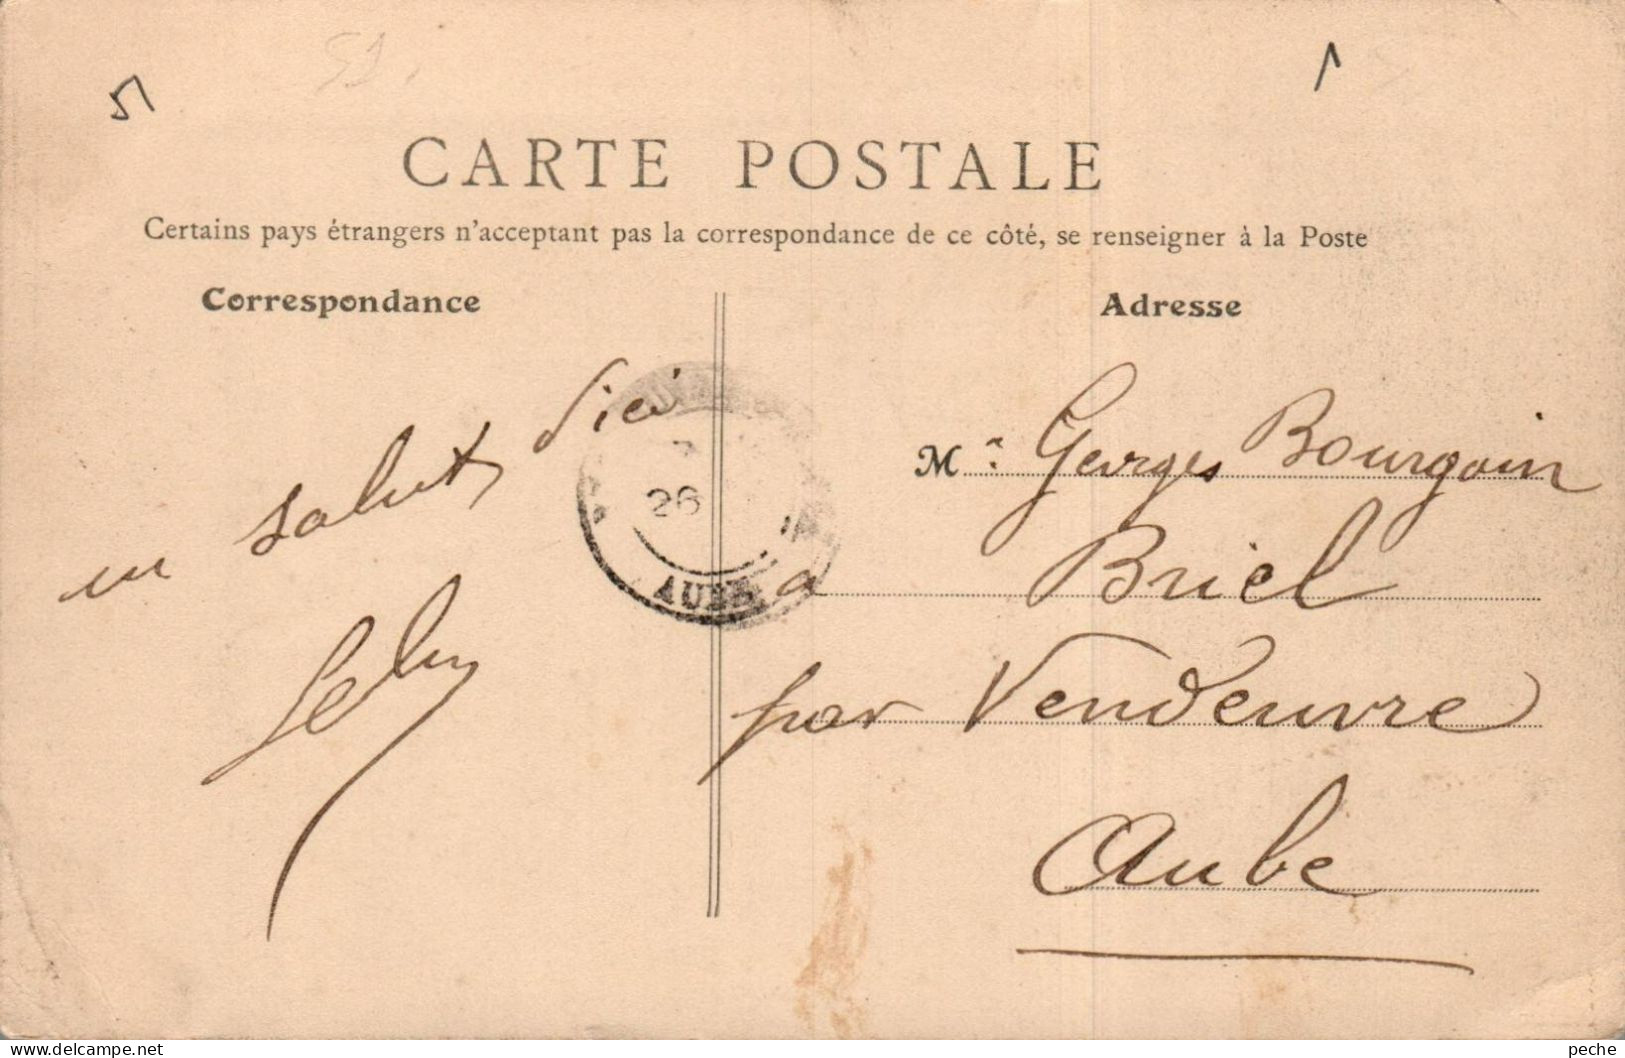 51
CARTE POSTALE
Certains pays étrangers n'acceptant pas la correspondance de ce côté, se renseigner à la Poste
Correspondance
Adresse
un salut d'ici
Mr. Georges Bourgoin
à Briel
par Vendeuvre
Aube
26
AUBE
delcampe.net
peche